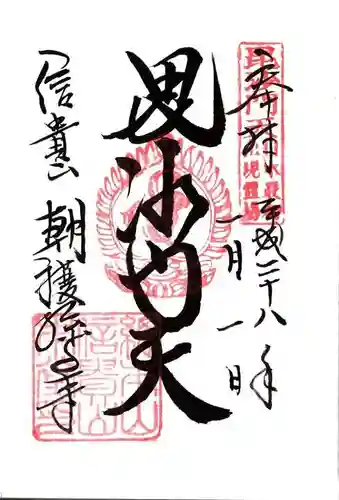 奉拝 平成二十八年
一月一日
毘沙門天
信貴山 朝護孫子寺